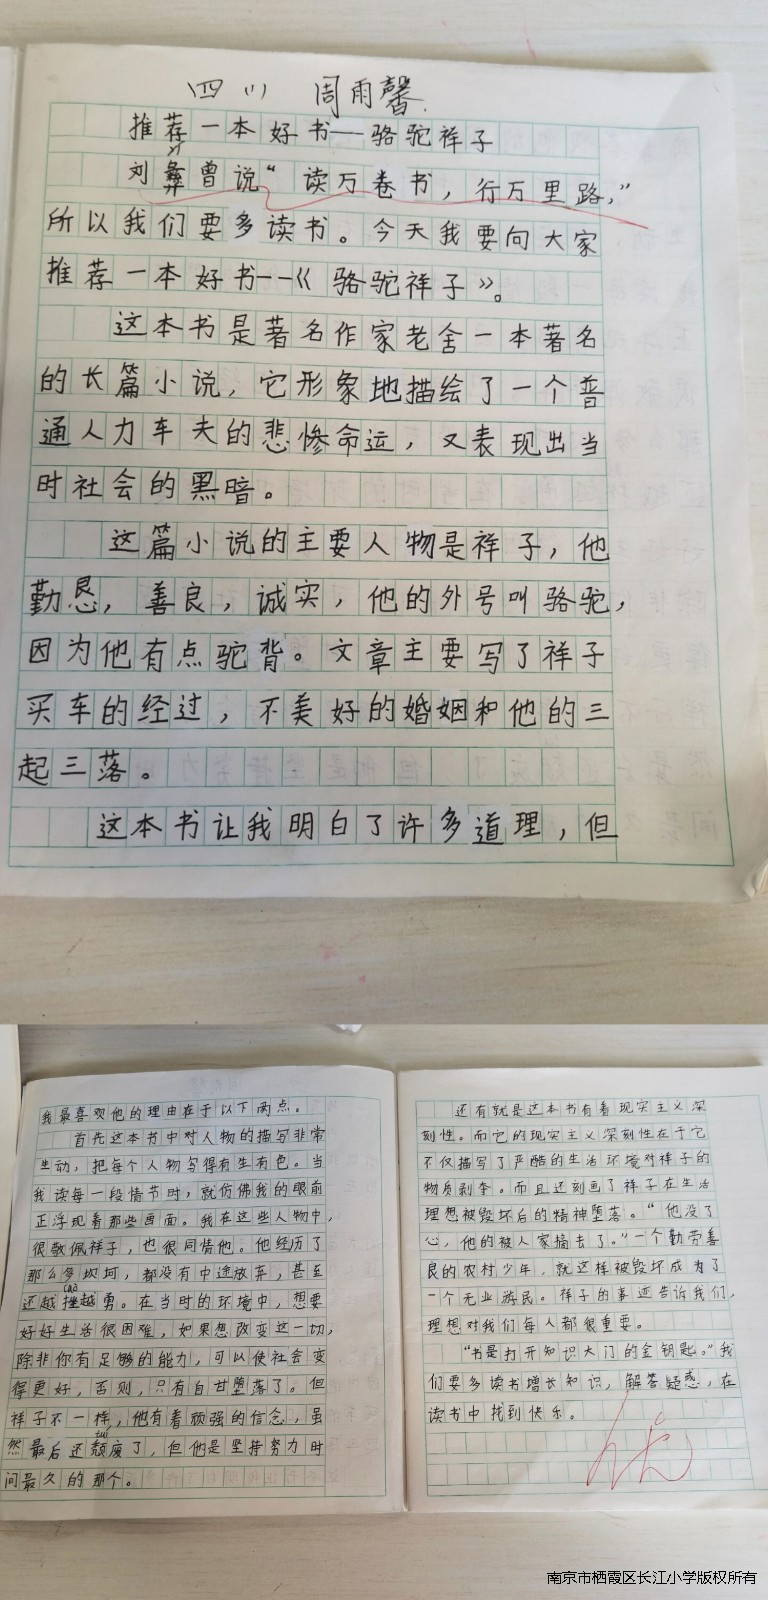 四(1) 周雨馨
推荐一本好书——骆驼祥子
刘彝曾说“读万卷书，行万里路，”
yí
所以我们要多读书。今天我要向大家
推荐一本好书--《骆驼祥子》。
这本书是著名作家老舍一本著名
的长篇小说，它形象地描绘了一个普
通人力车夫的悲惨命运，又表现出当
时社会的黑暗。
这篇小说的主要人物是祥子，他
勤恳，善良，诚实，他的外号叫骆驼，
因为他有点驼背。文章主要写了祥子
买车的经过，不美好的婚姻和他的三
起三落。
这本书让我明白了许多道理，但
我最喜欢他的理由在于以下两点。
首先这本书中对人物的描写非常
生动，把每个人物写得有生有色。当
我读每一段情节时，就仿佛我的眼前
正浮现着那些画面。我在这些人物中，
很敬佩祥子，也很同情他。他经历了
那么多坎坷，都没有中途放弃，甚至
还越挫越勇。在当时的环境中，想要
好好生活很困难，如果想改变这一切，
除非你有足够的能力，可以使社会变
得更好，否则，只有自甘堕落了。但
祥子不一样，他有着顽强的信念，虽
然最后还颓废了，但他是坚持努力时
间最久的那个。
还有就是这本书有着现实主义深
刻性。而它的现实主义深刻性在于它
不仅描写了严酷的生活环境对祥子的
物质剥夺。而且还刻画了祥子在生活
理想被毁坏后的精神堕落。“他没了
心，他的被人家摘去了。”一个勤劳善
良的农村少年，就这样被毁坏成为了
一个无业游民。祥子的事迹告诉我们，
理想对我们每人都很重要。
“书是打开知识大门的金钥匙。”我
们要多读书增长知识，解答疑惑，在
读书中找到快乐。
优
南京市栖霞区长江小学版权所有